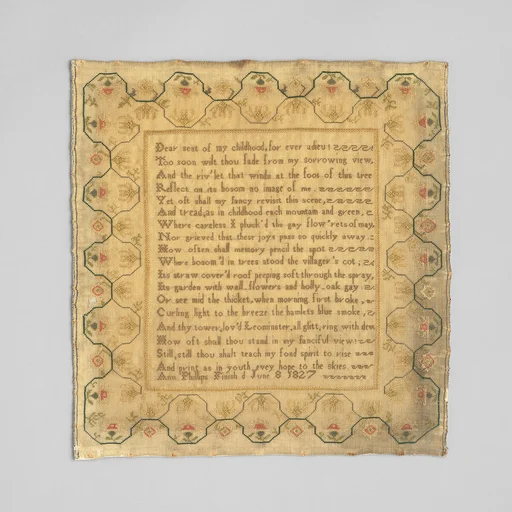 Dear seat of my childhood, for ever adieu!
Too soon wilt thou fade from my sorrowing view,
And the riv'let that winds at the foot of this tree
Reflect on its bosom no image of me.
Yet oft shall my fancy revisit this scene,
And tread, as in childhood each mountain and green,
Where careless I pluck'd the gay flow'rets of may,
Nor grieved that these joys pass so quickly away.
How often shall memory pencil the spot
Where bosom'd in trees stood the villager's cot,
Its straw cover'd roof peeping soft through the spray,
Its garden with wall flowers and holly oak gay
Or see mid the thicket, when morning first broke,
Curling light to the breeze the hamlets blue smoke,
And thy tower, lov'd Leominster, all glitt'ring with dew,
How oft shall thou stand in my fanciful view:
Still, still thou shalt teach my fond spirit to rise
And point as in youth evry hope to the skies.
Ann Phillips Finish'd June 8 1827